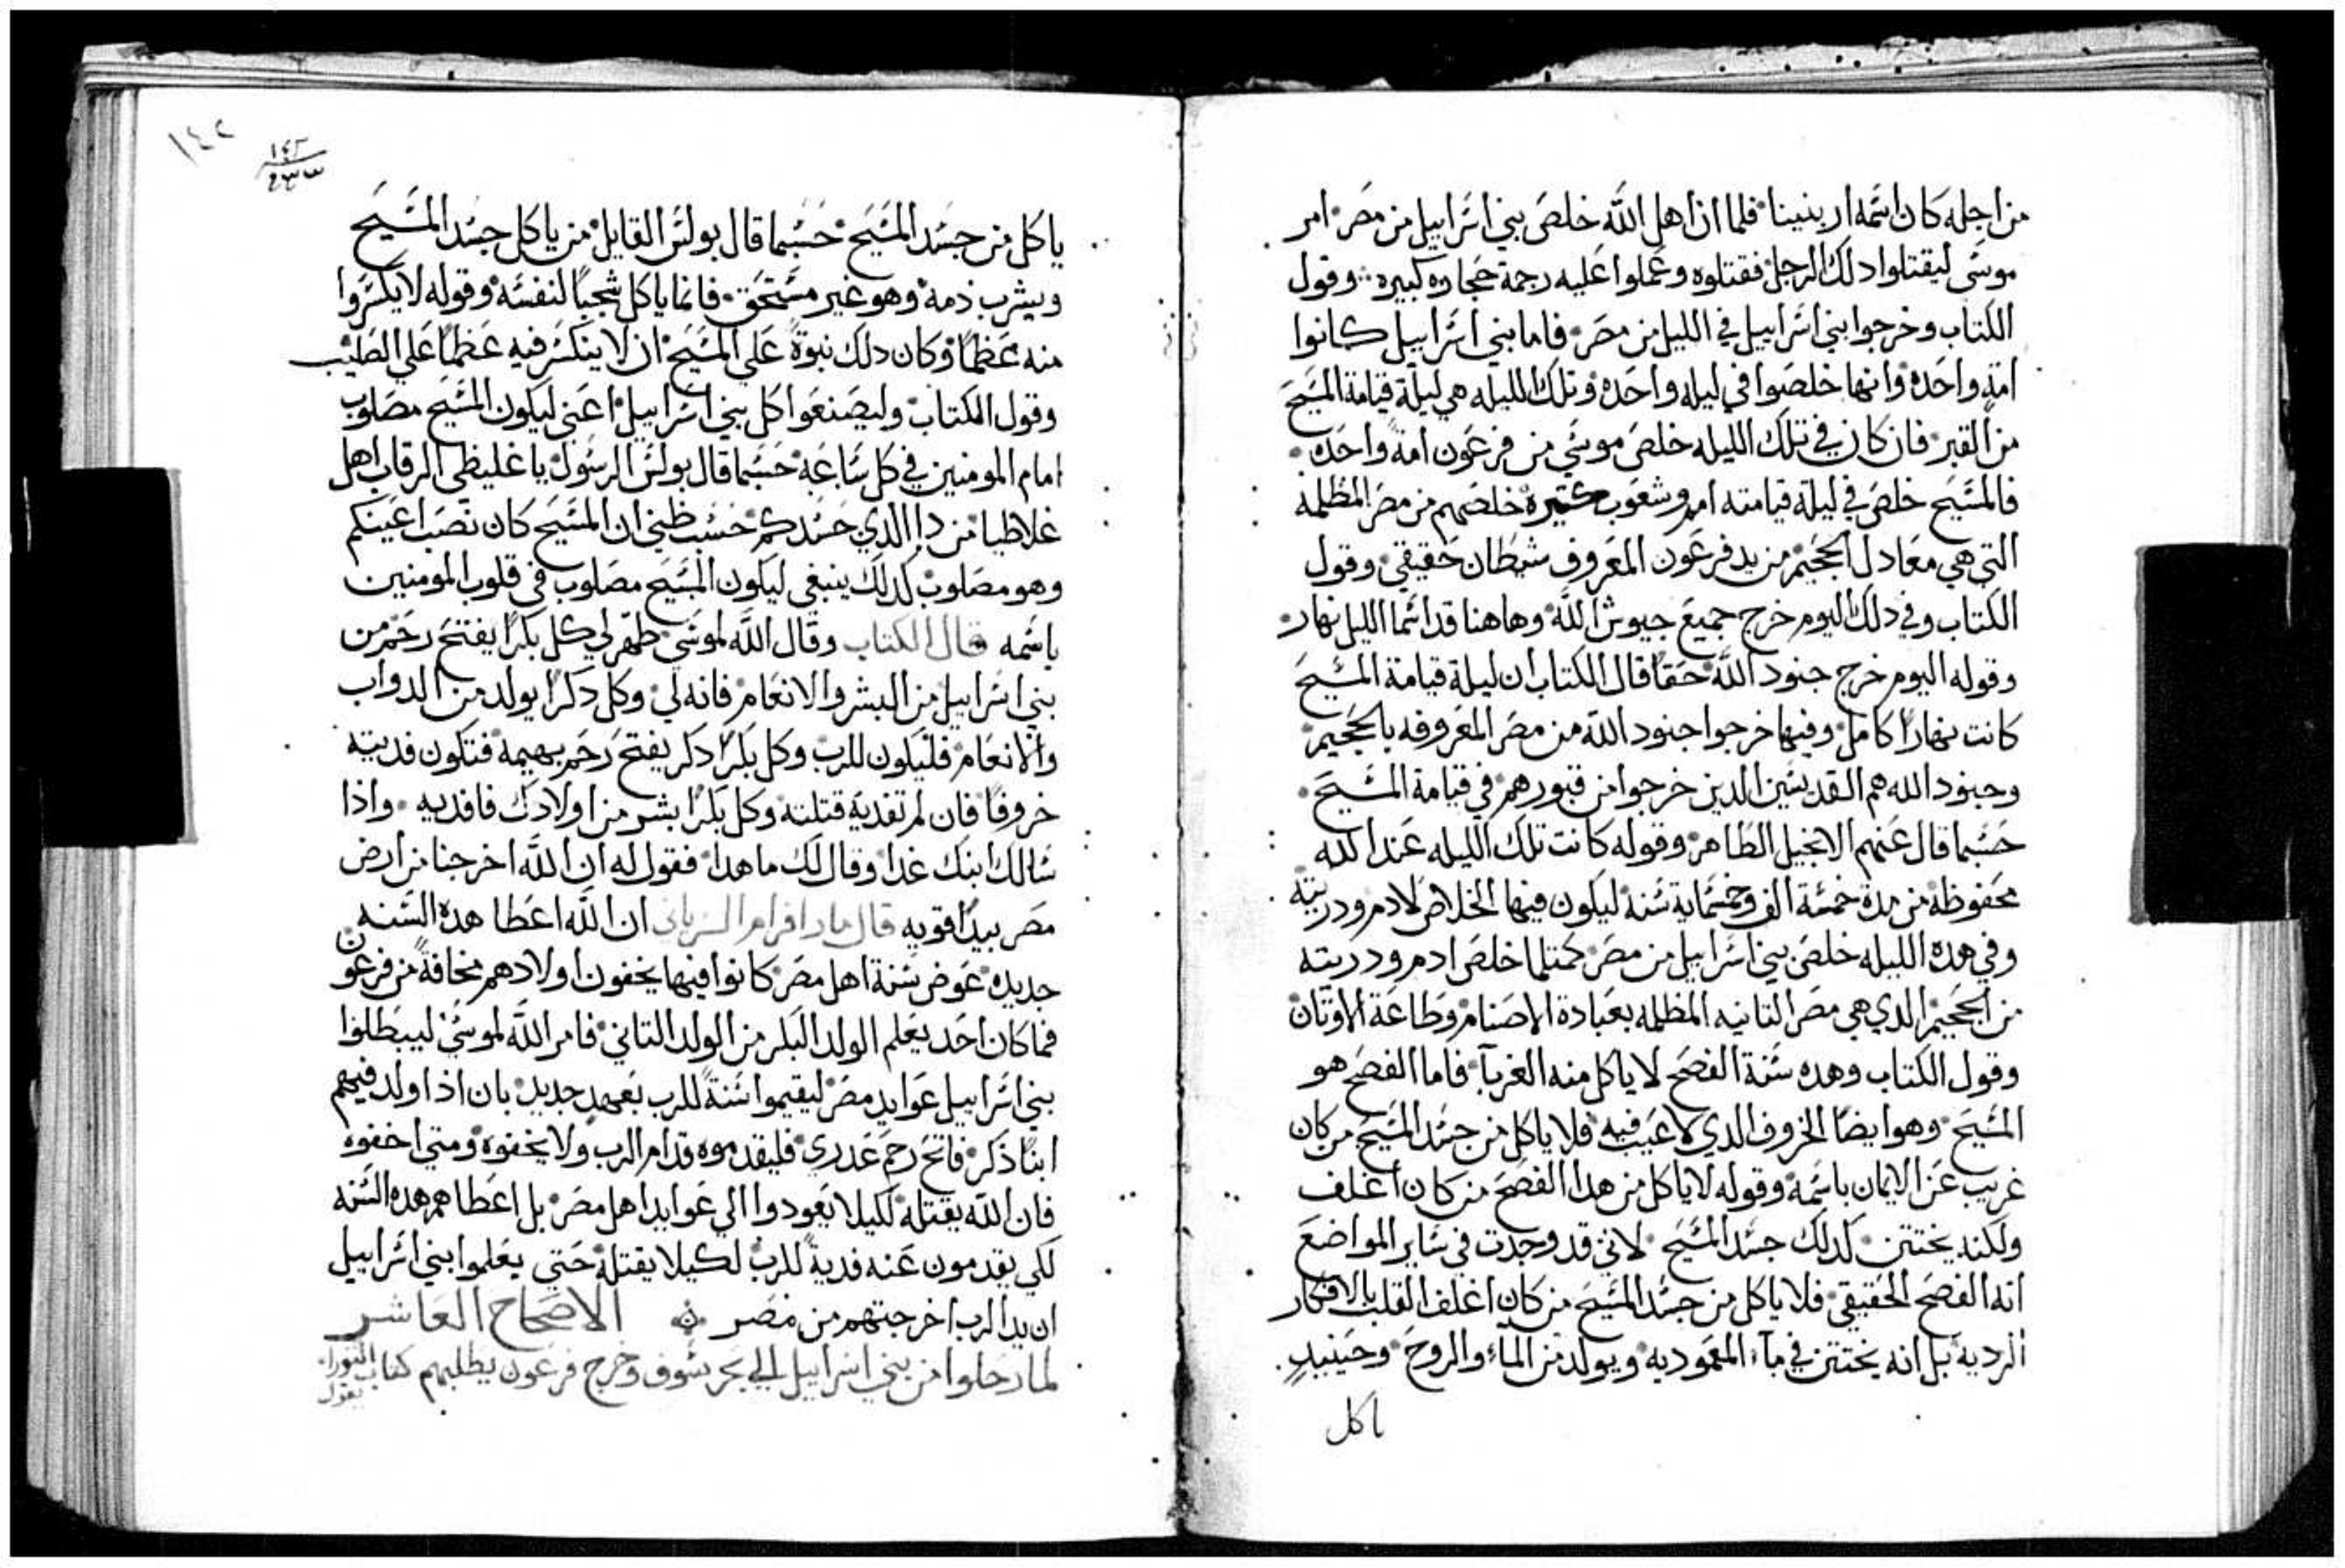 من اجله كان اسمه اربنينا فلما ان اهل الله خلص بني اسراييل من مصر امر
موسى ليقتلوا دلك الرجل فقتلوه وعملوا عليه رجمة حجاره كبيره وقول
الكتاب وخرجوا بني اسراييل في الليل من مصر فاما بني اسراييل كانوا
امة واحده وانها خلصوا في ليله واحده وتلك الليله هي ليلة قيامة المسيح
من القبر فان كان في تلك الليله خلص موسي من فرعون امة واحده
فالمسيح خلص في ليلة قيامته امم وشعوب كتيره خلصهم من مصر المظلمة
التي هي معادل الجحيم من يد فرعون المعروف شيطان حقيقي وقول
الكتاب وفي دلك اليوم خرج جميع جيوش الله وهاهنا قد اسما الليل نهار
وقوله اليوم خرج جنود الله حقا قال الكتاب ان ليلة قيامة المسيح
كانت نهارا كامل وفيها خرجوا جنود الله من مصر المعروفه بالجحيم
وجنود الله هم القديسين الدين خرجوا من قبورهم في قيامة المسيح
حسبما قال عنهم الانجيل الطاهر وقوله كانت تلك الليله عند الله
محفوظة من مدة خمسة الف وخمسماية سنة ليكون فيها الخلاص لادم ودريته
وفي هده الليله خلص بني اسراييل من مصر كمتلما خلص ادم ودريته
من الجحيم الدي هي مصر التانيه المظلمه بعبادة الاصنام وطاعة الاوتان
وقول الكتاب وهده سنة الفصح لا ياكل منه الغربآ فاما الفصح هو
المسيح وهو ايضا الخروف الدي لا عيب فيه فلا ياكل من جسد المسيح من كان
غريب عن الايمان باسمه وقوله لا ياكل من هدا الفصح من كان اغلف
ولكنه يختتن كدلك جسد المسيح لاني قد وجدت في ساير المواضع
انه الفصح الحقيقي فلا ياكل من جسد المسيح من كان اغلف القلب بالافكار
الرديه بل انه يختتن في مآء المعموديه ويولد من المآء والروح وحينيد
ياكل
١٤٢
ياكل من جسد المسيح حسبما قال بولس القايل من ياكل جسد المسيح
ويشرب دمه وهو غير مستحق فانما ياكل شجبا لنفسه وقوله لا يكسروا
منه عظما وكان دلك نبوة علي المسيح ان لا ينكسر فيه عظما علي الصليب
وقول الكتاب وليصنعوا كل بني اسراييل اعني ليكون المسيح مصلوب
امام المومنين في كل ساعه حسبما قال بولس الرسول يا غليظي الرقاب اهل
غلاطيا من دا الدي حسدكم حسب ظني ان المسيح كان نصب اعينكم
وهو مصلوب كدلك ينبغي ليكون المسيح مصلوب في قلوب المومنين
باسمه قال الكتاب وقال الله لموسي طهر لي كل بكرا يفتح رحم من
بني اسراييل من البشر والانعام فانه لي وكل دكرا يولد من الدواب
والانعام فليكون للرب وكل بكرا دكر يفتح رحم بهيمة فتكون فديته
خروفا فان لم تفديه قتلته وكل بكرا بشر من اولادك فافديه واذا
سالك ابنك غدا وقال لك ما هدا فقول له ان الله اخرجنا من أرض
مصر بيدا قويه قال مار افرام السرياني ان الله اعطا هده السنه
جديده عوض سنة اهل مصر كانوا فيها يخفون اولادهم مخافة من فرعون
فما كان احد يعلم الولد البكر من الولد التاني فامر الله لموسي ليبطلوا
بني اسراييل عوايد مصر ليقيموا سنة للرب بعهد جديد بان اذا ولد فيهم
ابنا ذكر فاتح رحم عدري فليقدموه قدام الرب ولا يخفوه ومتي اخفوه
فان الله يقتله لكيلا يعودوا الي عوايد اهل مصر بل اعطاهم هده السنه
لكي يقدمون عنه فدية للرب لكيلا يقتله حتي يعلموا بني اسراييل
ان يد الرب اخرجتهم من مصر الاصحاح العاشر
لما رحلوا من بني اسراييل الي بحر سوف وخرج فرعون يطلبهم كتاب التوراه
يقول